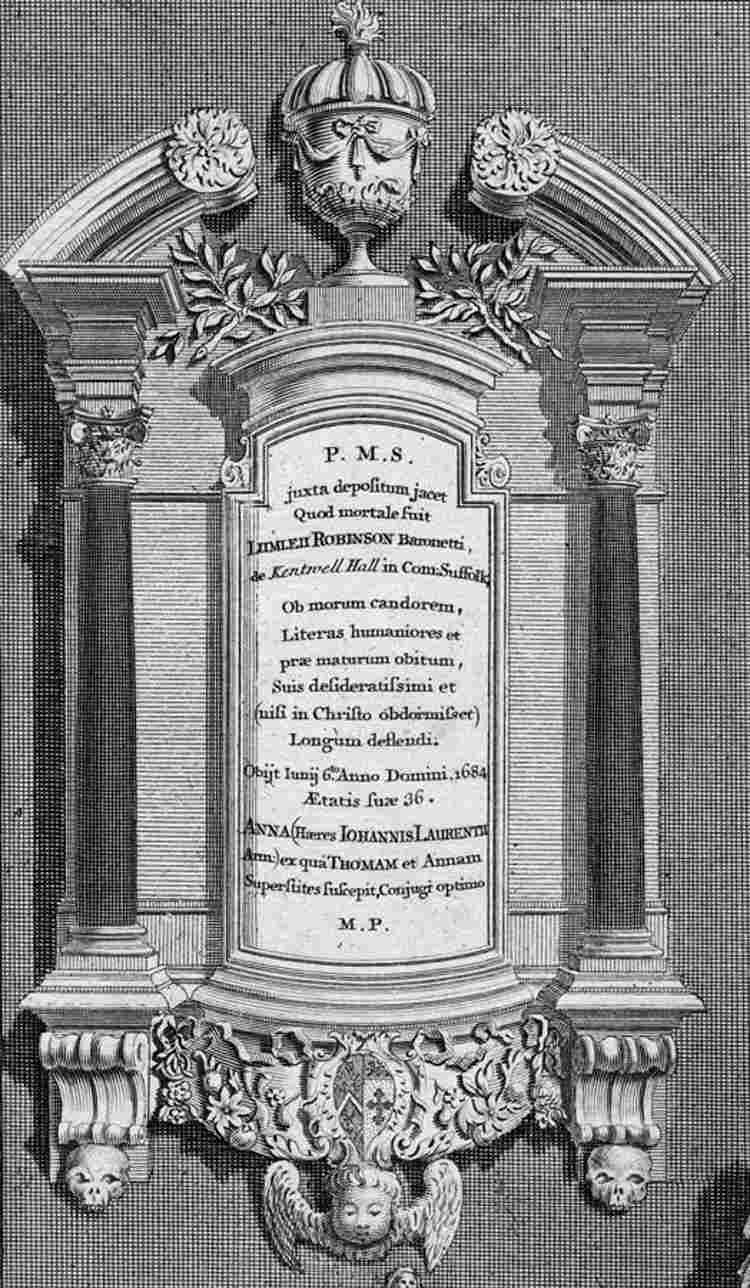 P. M. S.
juxta depositum jacet
Quod mortale fuit
LUMLEII ROBINSON Baronetti,
de Kentwell Hall in Com: Suffolk
Ob morum candorem,
Literas humaniores et
præ maturum obitum,
Suis desideratissimi et
(nisi in Christo obdormisset)
Longùm deflendi.
Obijt Iunij 6.to Anno Domini. 1684
Ætatis suæ 36.
ANNA (Hæres IOHANNIS LAURENTII
Arm:) ex quâ THOMAM et Annam
Superstites suscepit, Conjugi optimo
M. P.